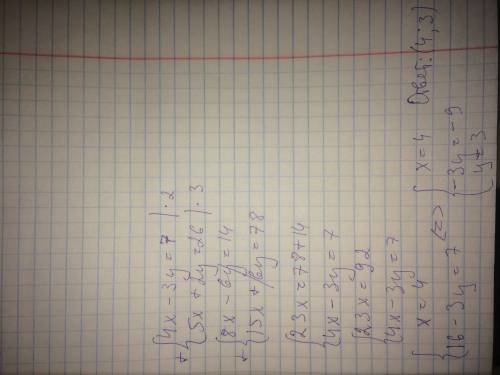 + { 4x - 3y = 7 | · 2
{ 5x + 2y = 26 | · 3
+ { 8x - 6y = 14
{ 15x + 6y = 78
{ 23x = 78 + 14
{ 4x - 3y = 7
{ 23x = 92
{ 4x - 3y = 7
{ x = 4
{ 16 - 3y = 7 <=> { x = 4
{ -3y = -9
{ y = 3
Ответ: (4; 3)